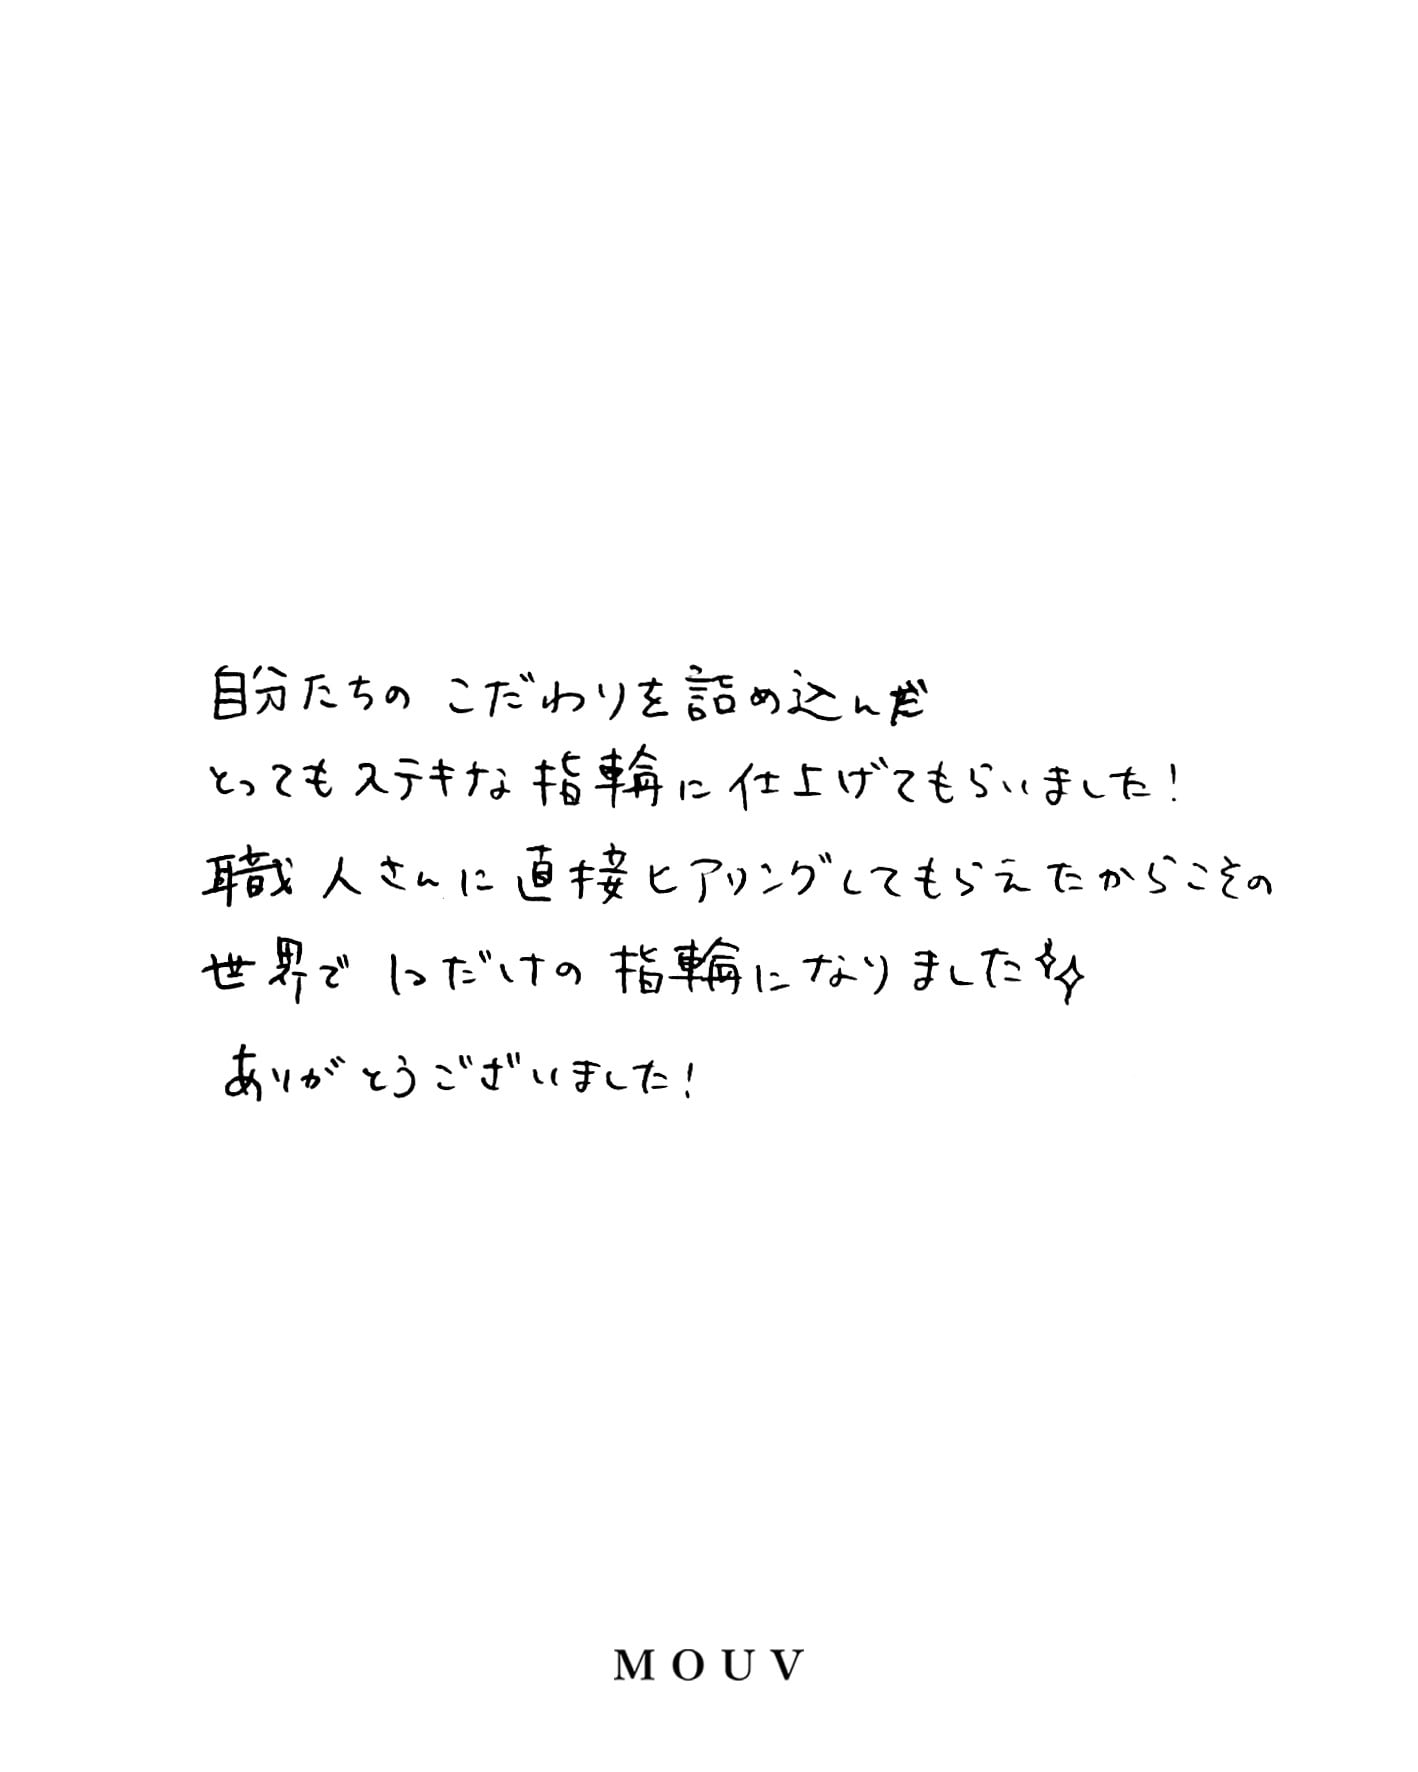 自分たちの こだわりを詰め込んだ
とってもステキな指輪に仕上げてもらいました!
職人さんに直接ヒアリングしてもらえたからこその
世界で1つだけの指輪になりました✨
ありがとうございました!
MOUV